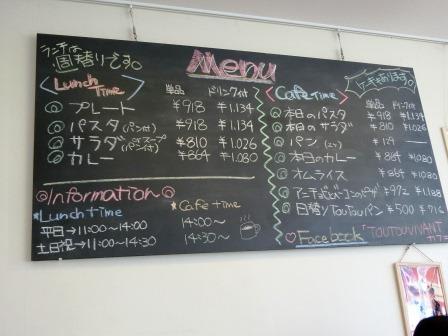 ランチは
週替りです。
Menu
Lunch Time
単品 ドリンク付
◎プレート ¥918 ¥1.134
◎パスタ(パン付) ¥918 ¥1.134
◎サラダ ¥810 ¥1.026
◎カレー ¥864 ¥1.080
◎Information◎
*Lunch time
平日→11:00〜14:00
土日祝→11:00〜14:30
*Cafe time
14:00〜
14:30〜
ケーキあります。
Cafe Time
単品 ドリンク付
◎本日のパスタ ¥918 ¥1.134
◎本日のサラダ ¥810 ¥1.026
◎パン ¥129 —
◎本日のカレー ¥864 ¥1.080
◎オムライス ¥864 ¥1.080
¥972 ¥1.188
◎日替りTouTouパン ¥500 ¥716
♡Facebook 「TOUTOUVIVANT
カフェ